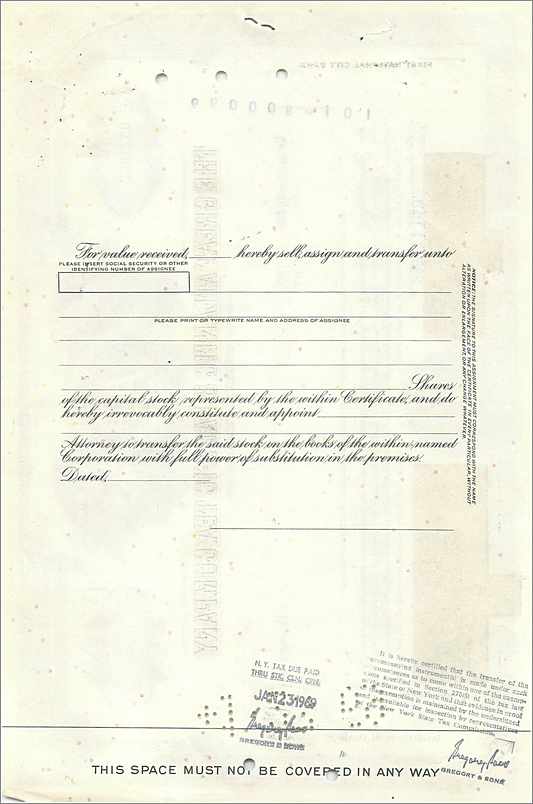 For value received, hereby sell, assign and transfer unto
PLEASE INSERT SOCIAL SECURITY OR OTHER
IDENTIFYING NUMBER OF ASSIGNEE
PLEASE PRINT OR TYPEWRITE NAME AND ADDRESS OF ASSIGNEE
Shares
of the capital stock represented by the within Certificate, and do
hereby irrevocably constitute and appoint
Attorney to transfer the said stock on the books of the within named
Corporation with full power of substitution in the premises.
Dated,
NOTICE: THE SIGNATURE TO THIS ASSIGNMENT MUST CORRESPOND WITH THE NAME
AS WRITTEN UPON THE FACE OF THE CERTIFICATE IN EVERY PARTICULAR, WITHOUT
ALTERATION OR ENLARGEMENT OR ANY CHANGE WHATEVER.
N. Y. TAX DUE PAID
THRU STK. CLN. CRN.
JAN 23 1969
GREGORY & SONS
It is hereby certified that the transfer of the
accompanying instrument(s) is made under such
circumstances as to come within one of the exemp-
tions specified in Section 270(5) of the tax law
of the State of New York and that evidence in proof
of the exemption is maintained by the undersigned
and is available for inspection by representatives
of the New York State Tax Commission.
GREGORY & SONS
THIS SPACE MUST NOT BE COVERED IN ANY WAY